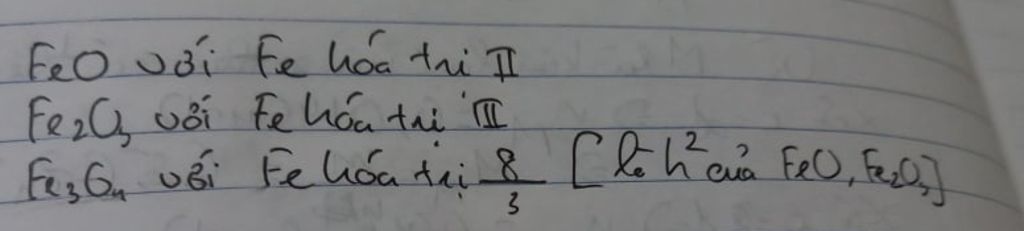 FeO với Fe hóa trị II
Fe2O3 với Fe hóa trị III
Fe3O4 với Fe hóa trị 8/3 [là h² của FeO, Fe2O3]